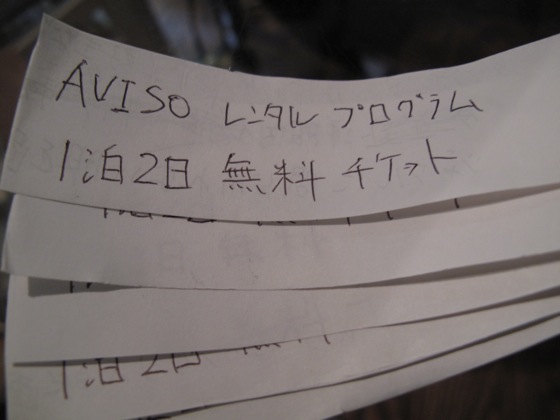 AVISO レンタル プログラム
1泊2日 無料 チケット
1泊2日